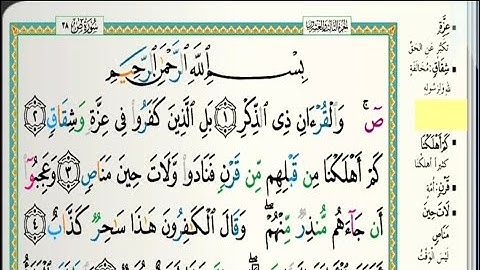 سُورَةُ ص ٣٨
بِسْمِ اللَّهِ الرَّحْمَٰنِ الرَّحِيمِ
صٓ ۚ وَالْقُرْءَانِ ذِى الذِّكْرِ ١ بَلِ الَّذِينَ كَفَرُوا۟ فِى عِزَّةٍ وَشِقَاقٍ ٢
كَمْ أَهْلَكْنَا مِن قَبْلِهِم مِّن قَرْنٍ فَنَادَوا۟ وَّلَاتَ حِينَ مَنَاصٍ ٣ وَعَجِبُوٓا۟
أَن جَآءَهُم مُّنذِرٌ مِّنْهُمْ ۖ وَقَالَ الْكَٰفِرُونَ هَٰذَا سَٰحِرٌ كَذَّابٌ ٤
عِزَّةٍ
تَكَبُّرٍ عَنِ الحَقِّ
شِقَاقٍ: مُخَالَفَةٍ
لِلَّهِ وَلِرَسُولِهِ
كَمْ أَهْلَكْنَا
كَثِيرًا أَهْلَكْنَا
قَرْنٍ: أُمَّةٍ
لَاتَ حِينَ
مَنَاصٍ
لَيْسَ الوَقْتُ